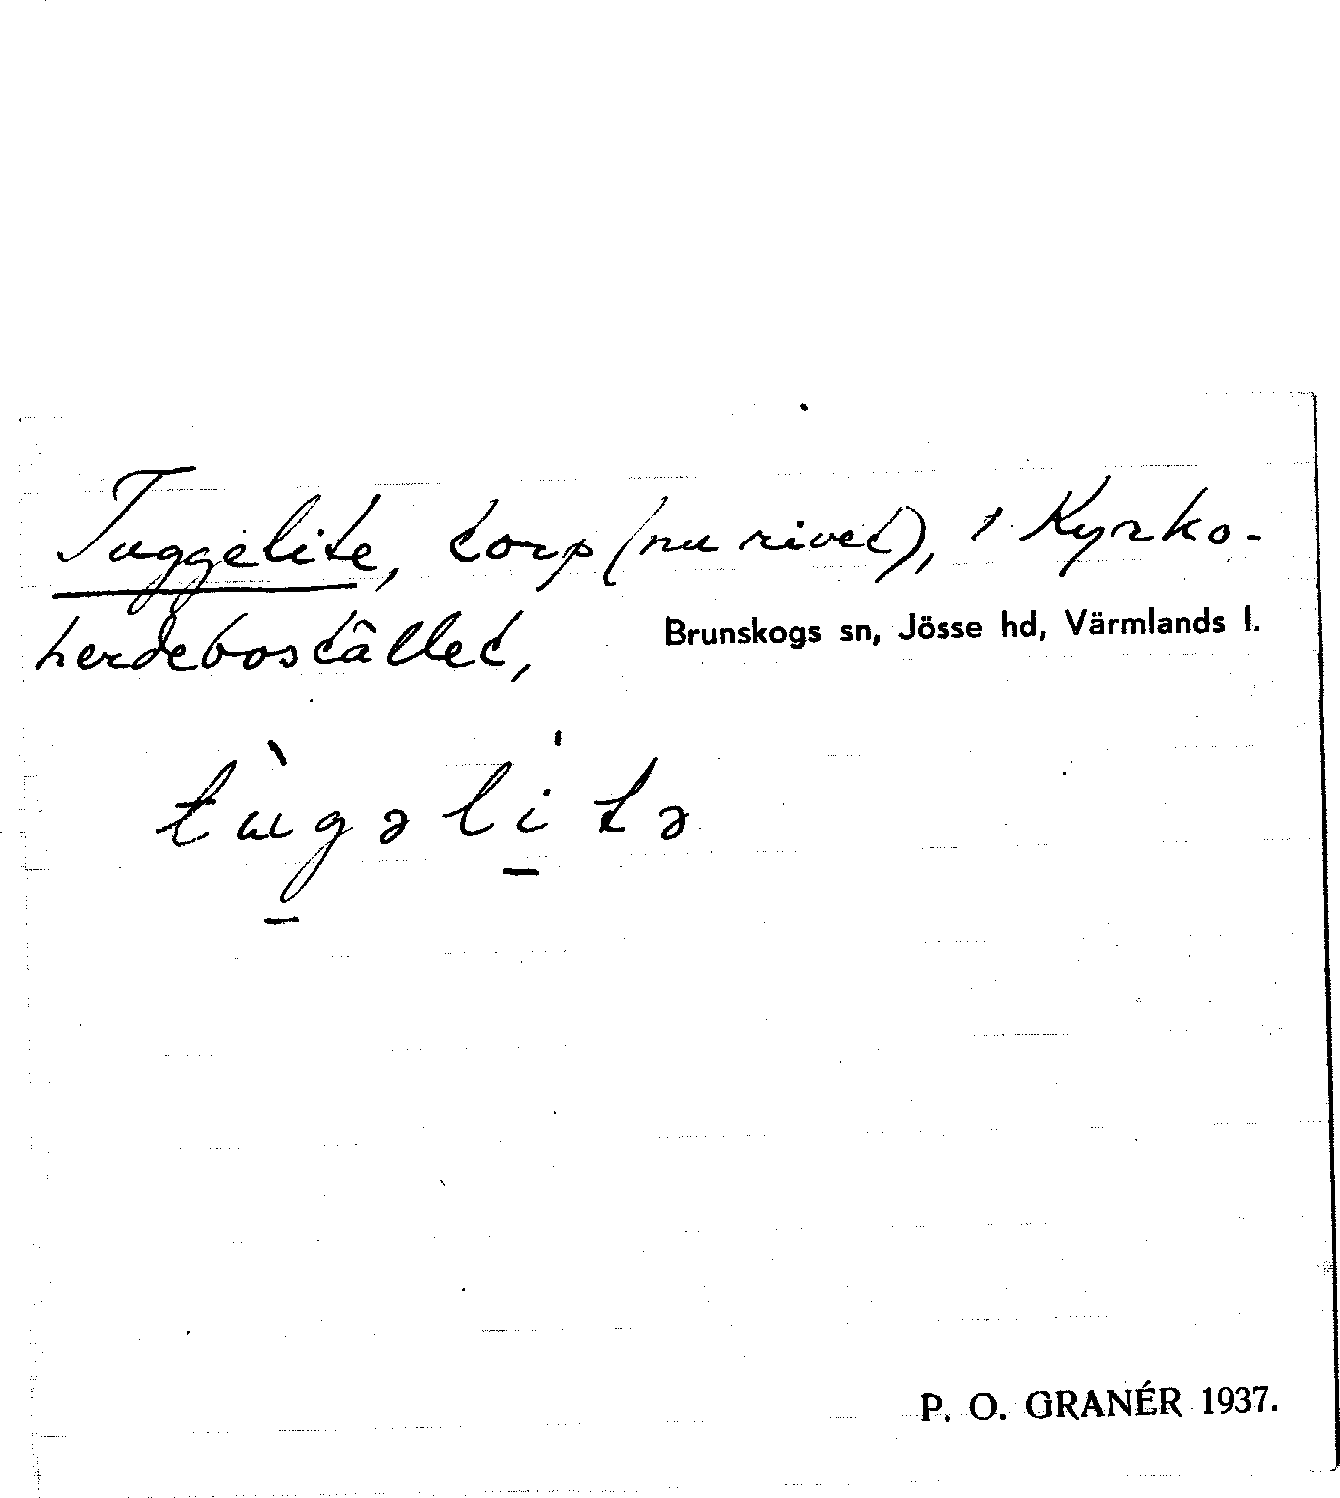 Tuggelite, torp (nu rivet), i Kyrko-
herdebostället,
Brunskogs sn, Jösse hd, Värmlands l.
tùgəlítə
P. O. GRANÉR 1937.